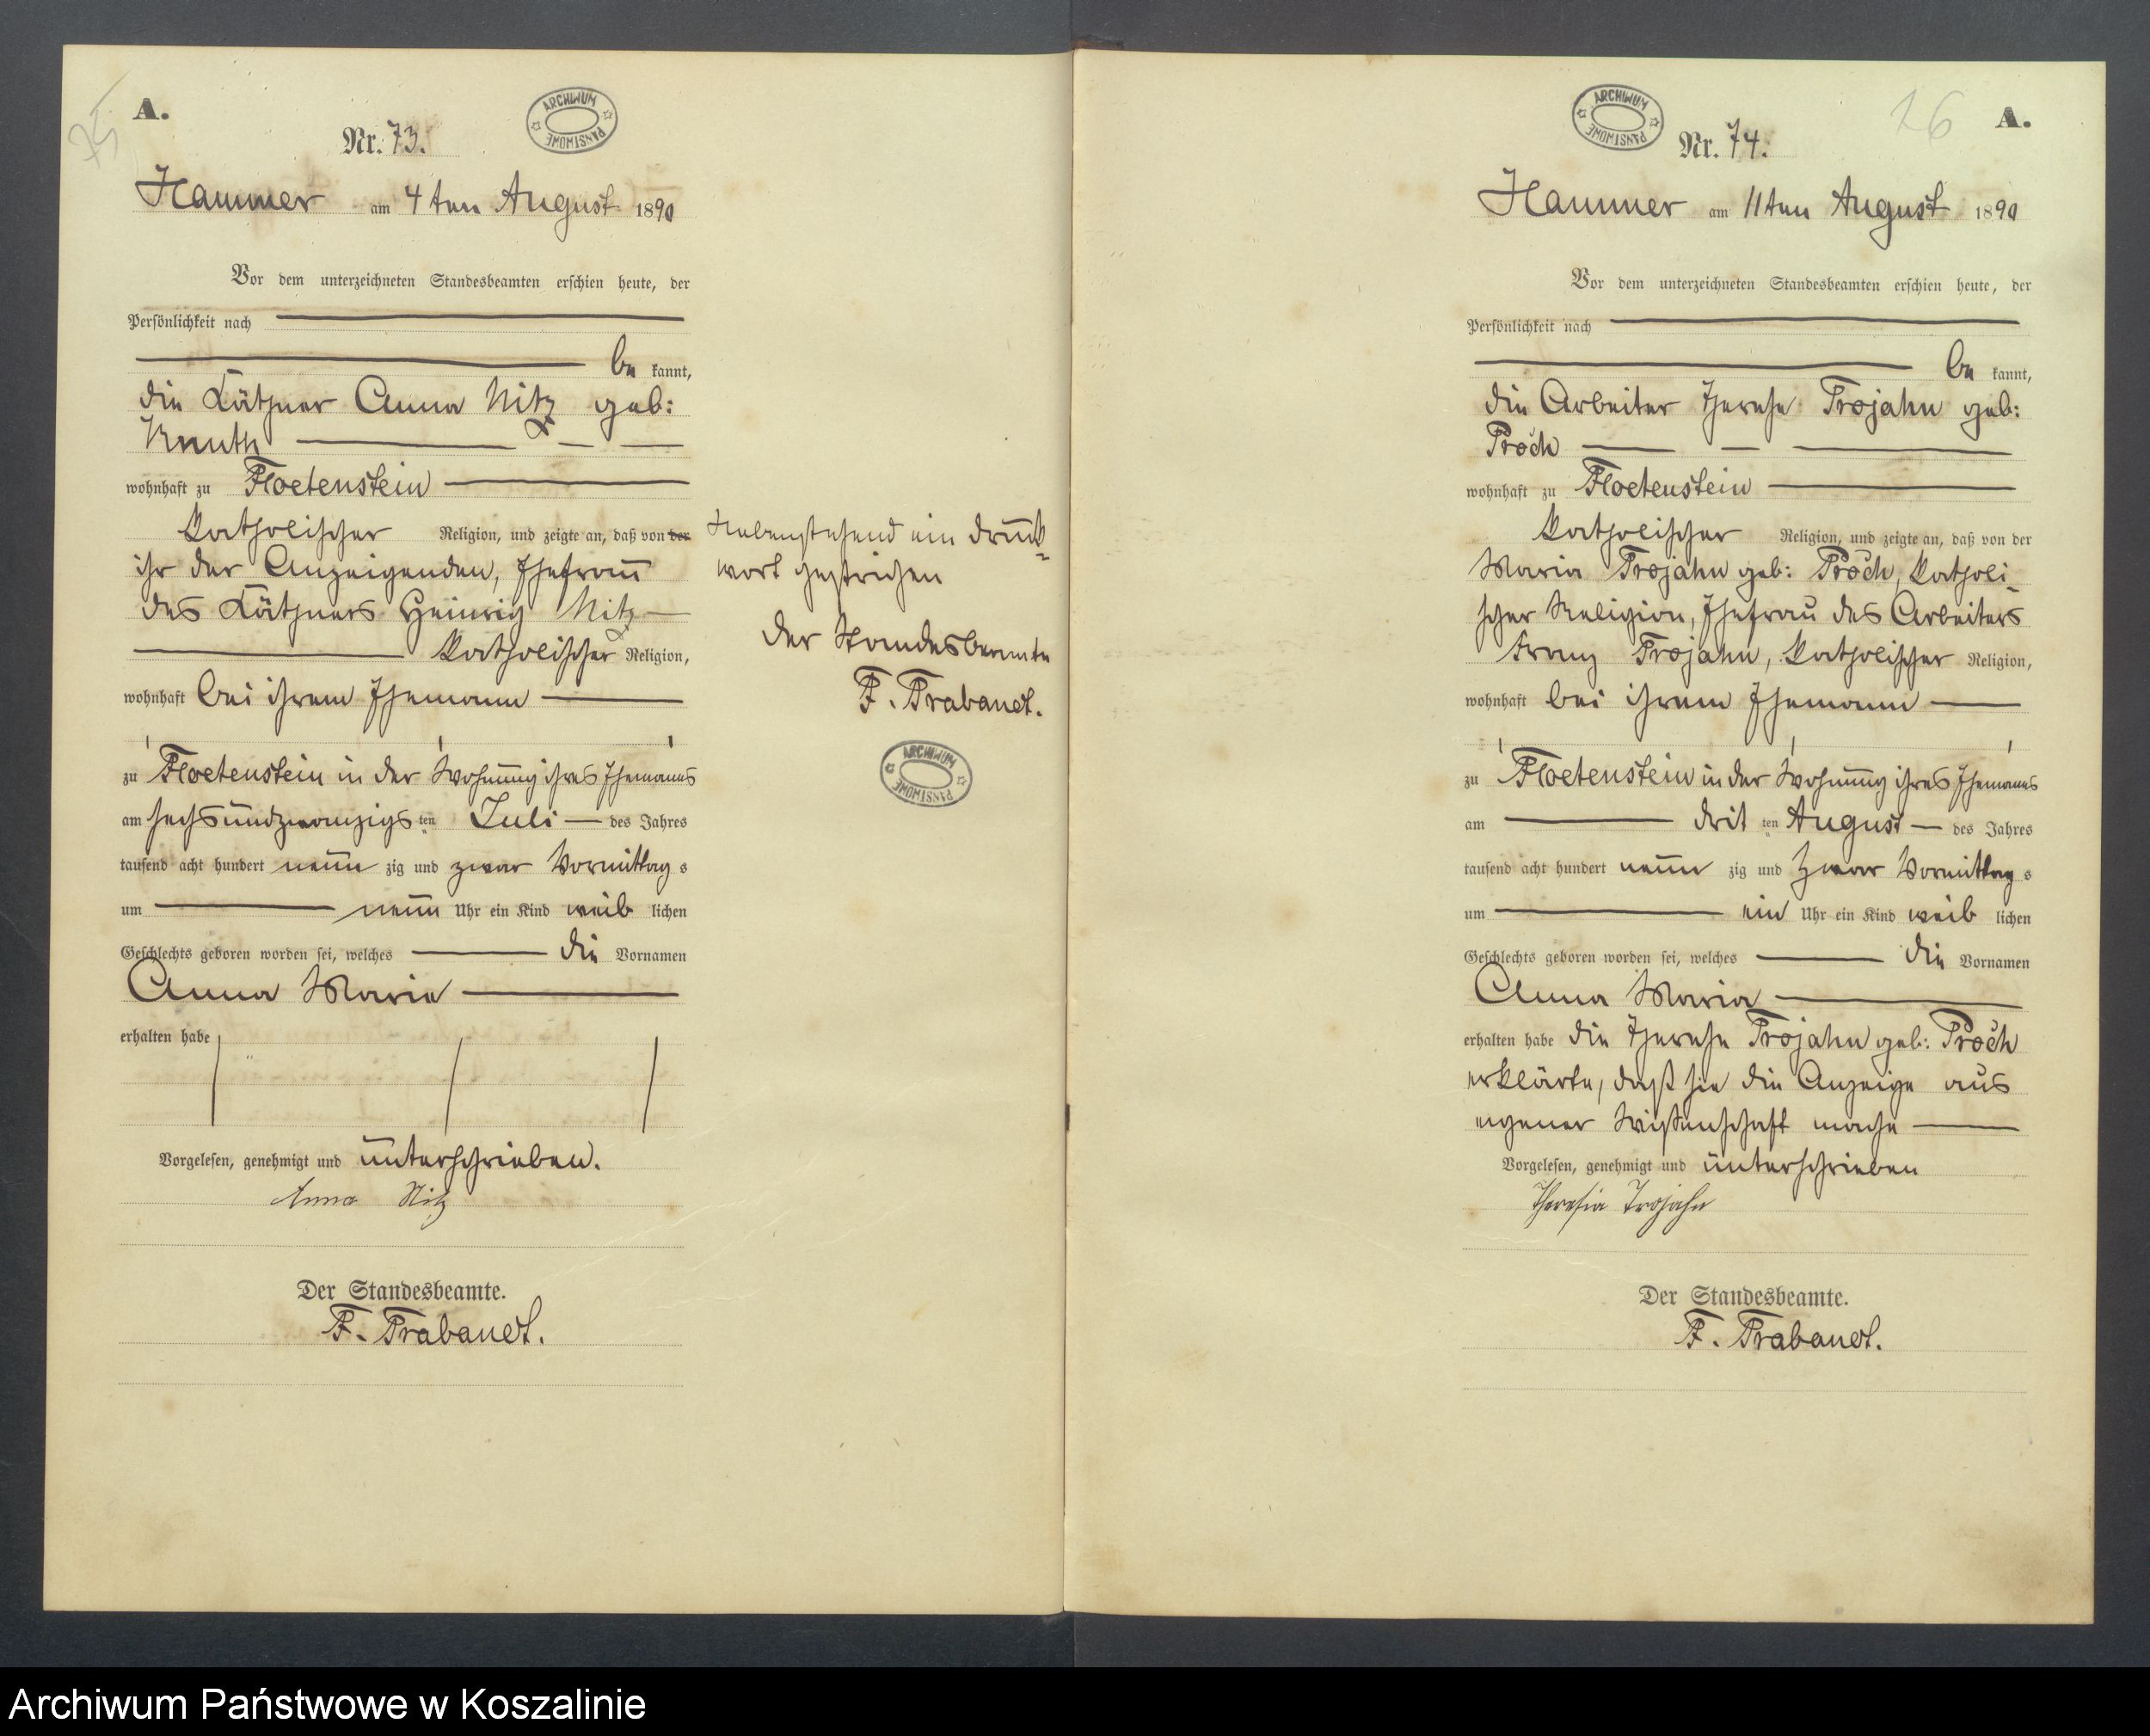 A.
Nr. 73.
ARCHIWUM PAŃSTWOWE
Hammer am 4ten August 1890
Vor dem unterzeichneten Standesbeamten erschien heute, der
Persönlichkeit nach
be kannt,
die Käthner Anna Nitz geb:
Knuth
wohnhaft zu Floetenstein
katholischer Religion, und zeigte an, daß von der
ihr der Anzeigenden, Ehefrau
des Käthners Heinrich Nitz
katholischer Religion,
wohnhaft bei ihrem Ehemann
zu Floetenstein in der Wohnung ihres Ehemanns
am sechsundzwanzigs ten Juli des Jahres
tausend acht hundert neun zig und zwar Vormittag s
um neun Uhr ein Kind weib lichen
Geschlechts geboren worden sei, welches die Vornamen
Anna Marie
erhalten habe
Vorgelesen, genehmigt und unterschrieben.
Anna Nitz
Der Standesbeamte.
F. Trabandt.
Nebenstehend ein Druck-
wort gestrichen
Der Standesbeamte
F. Trabandt.
ARCHIWUM PAŃSTWOWE
ARCHIWUM PAŃSTWOWE
26
A.
Nr. 74.
Hammer am 11ten August 1890
Vor dem unterzeichneten Standesbeamten erschien heute, der
Persönlichkeit nach
be kannt,
die Arbeiter Therese Trojahn geb:
Proch
wohnhaft zu Floetenstein
katholischer Religion, und zeigte an, daß von der
Maria Trojahn geb: Proch, katholi-
scher Religion, Ehefrau des Arbeiters
Franz Trojahn, katholischer Religion,
wohnhaft bei ihrem Ehemann
zu Floetenstein in der Wohnung ihres Ehemanns
am drit ten August des Jahres
tausend acht hundert neun zig und zwar Vormittag s
um ein Uhr ein Kind weib lichen
Geschlechts geboren worden sei, welches die Vornamen
Anna Maria
erhalten habe die Therese Trojahn geb: Proch
erklärte, daß sie die Anzeige aus
eigener Wissenschaft mache
Vorgelesen, genehmigt und unterschrieben
Theresia Trojahn
Der Standesbeamte.
F. Trabandt.
Archiwum Państwowe w Koszalinie